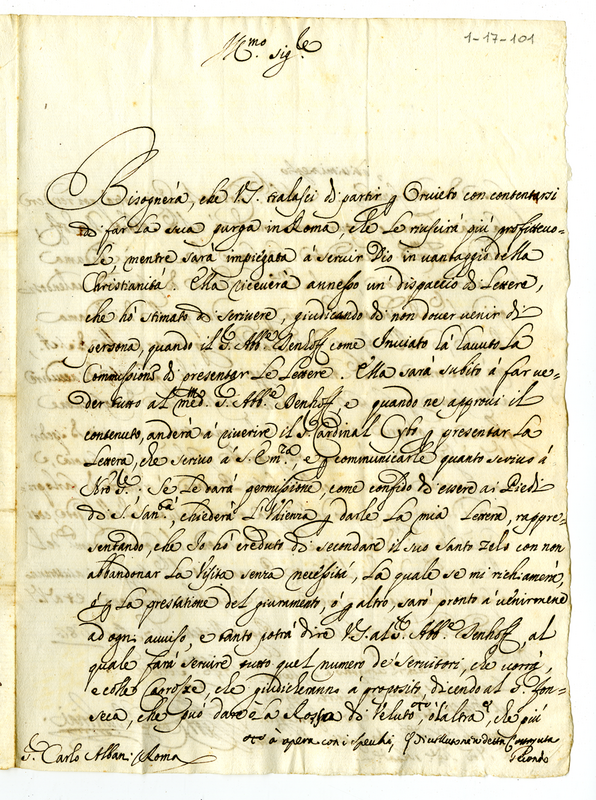 1-17-101
Ill.mo sig.re
Bisognerà, che V.S. tralasci di partir p Orvieto con contentarsi
di far la sua purga in Roma, che le riuscirà più profittevo=
le, mentre sarà impiegata à servir Dio in vantaggio della
Christianità. Ella riceverà annesso un' dispaccio di Lettere,
che hò stimato di scrivere, giudicando di non dover venir di
persona, quando il S.r Abb.e Denhoff come Inviato là havuto la
Commissione di presentar le Lettere. Ella sarà subito à far ve=
der tutto al med.mo S.r Abb.e Denhoff, e quando ne approvi il
contenuto, anderà à riverire il S.r Cardinal Cybo p presentar la
Lettera, che scrivo à S. Em.za, e p communicarle quanto scrivo à
Nro S.re. Se le darà permissione, come confido di essere ai Piedi
di S. San.tà, chiederà l'Udienza p darle la mia Lettera, rappre=
sentando, che Io hò creduto di secondare il suo santo zelo con non
abbandonar la Visita senza necessità, la quale se mi richiamerà,
ò p la prestatione del giuramento, ò p altro, sarò pronto à venirmene
ad ogni avviso, e tanto potrà dire V.S. al S.r Abb.e Denhoff, al
quale farà servire tutto quel numero de' Servitori, che vorrà,
e colle Carrozze, che giudicheranno à proposito, dicendo al S.r Fon=
seca, che può dare ò la Rossa di Veluto, ò l'altra, che più
à opera con i specchi,
S.r Carlo Alban: Roma